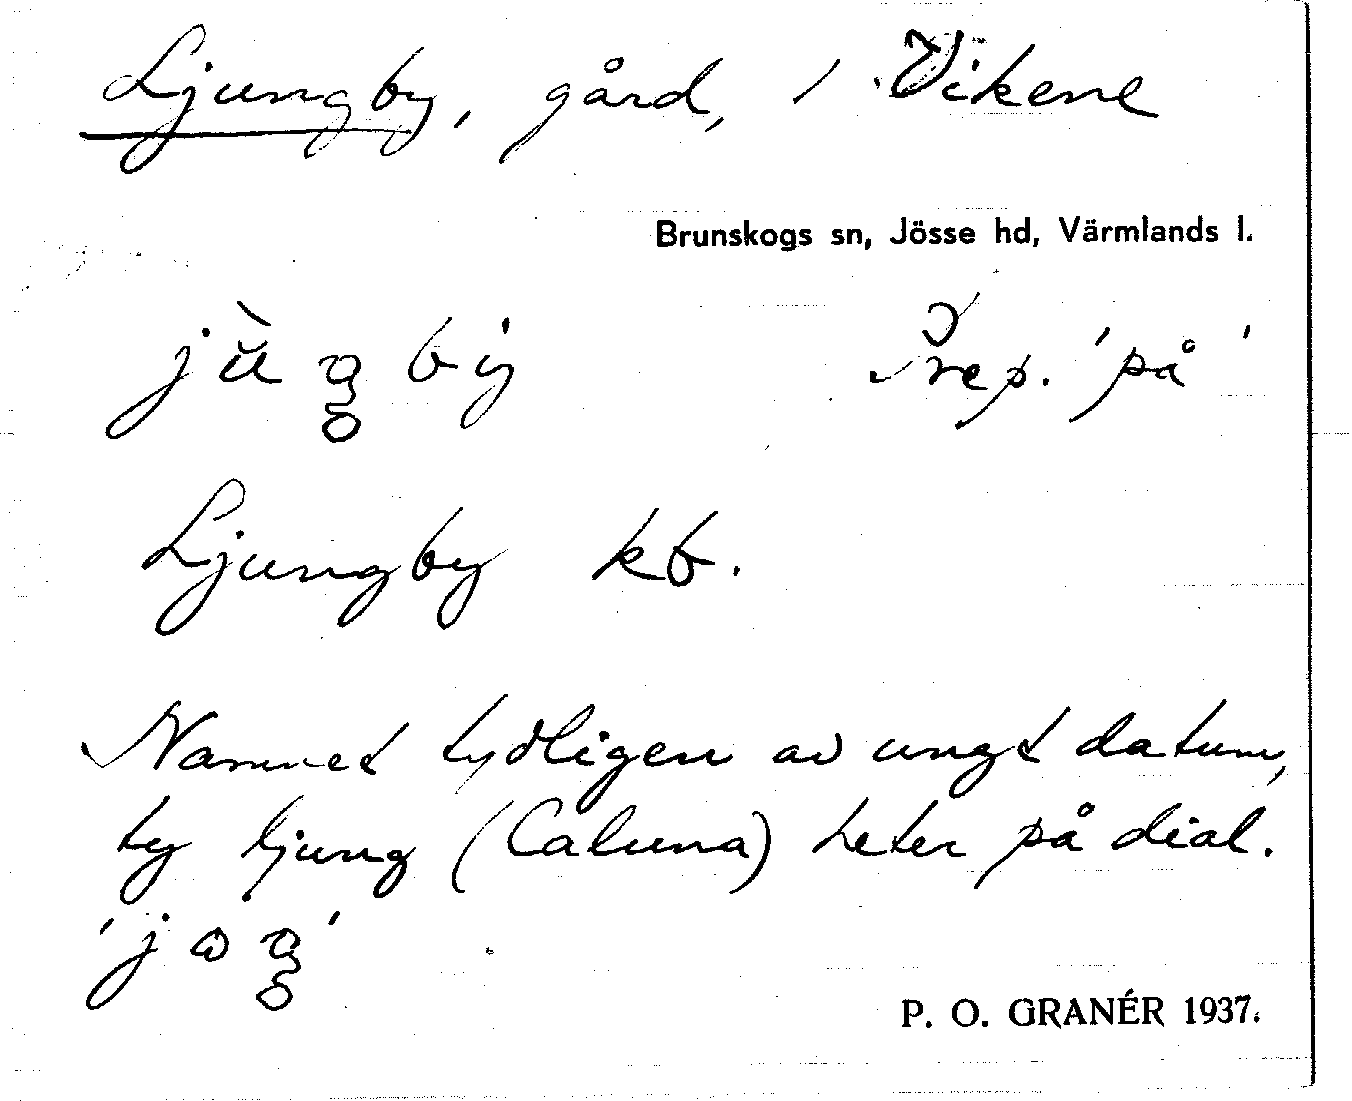 Ljungby, gård, / Vikene
Brunskogs sn, Jösse hd, Värmlands l.
Prep. 'på'
Ljungby kb.
Namnet tydligen av ungt datum,
ty ljung (Caluna) heter på dial.
P. O. GRANÉR 1937.